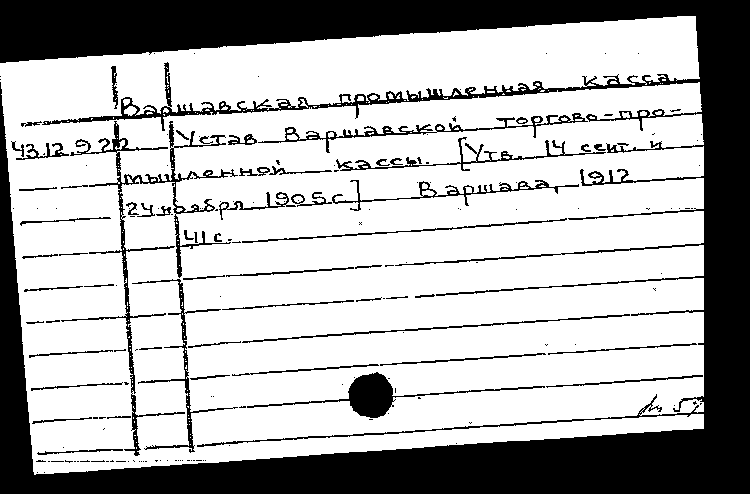 Варшавская промышленная касса.
43.12.9.212. Устав Варшавской торгово-про-
мышленной кассы. [Утв. 14 сент. и
24 ноября 1905 г.] Варшава, 1912
41 с.